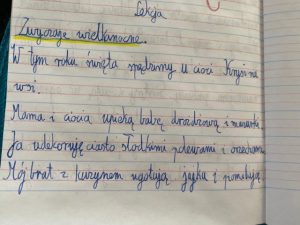 Lekcja
Zwyczaje wielkanocne.
W tym roku święta spędzimy u cioci Krysi na
wsi.
Mama i ciocia upieką babę drożdżową i mazurki.
Ja udekoruję ciasto słodkimi polewami i orzechami.
Mój brat z kuzynem ugotują jajka i pomalują